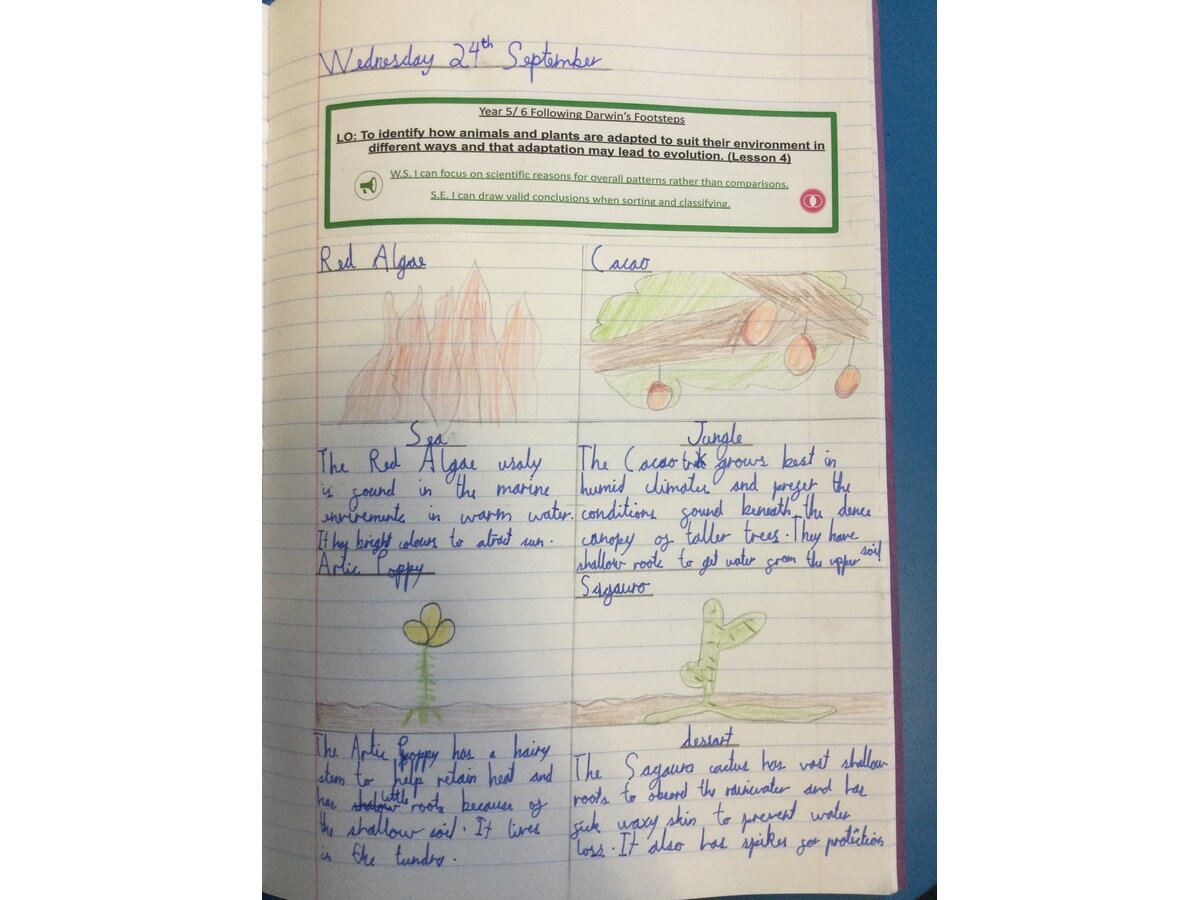 Wednesday 24th September
Year 5/ 6 Following Darwin's Footsteps
LO: To identify how animals and plants are adapted to suit their environment in
different ways and that adaptation may lead to evolution. (Lesson 4)
W.S. I can focus on scientific reasons for overall patterns rather than comparisons.
S.E. I can draw valid conclusions when sorting and classifying.
Red Algae
Sea
The Red Algae usaly
is found in the marine
envirements in warm water.
It has bright colours to atract sun.
Cacao
Jungle
The Cacao grows best in
humid climates and prefer the
conditions found beneath the dence
canopy of taller trees. They have
shallow roots to get water from the upper soil
Artic Poppy
The Artic Poppy has a hairy
stem to help retain heat and
has little roots because of
the shallow soil. It lives
in the tundra.
Sagauro
dessart
The Sagauro cactus has vast shallow
roots to obsord the rainwater and has
fick waxy skin to prevent water
loss. It also has spikes for protection